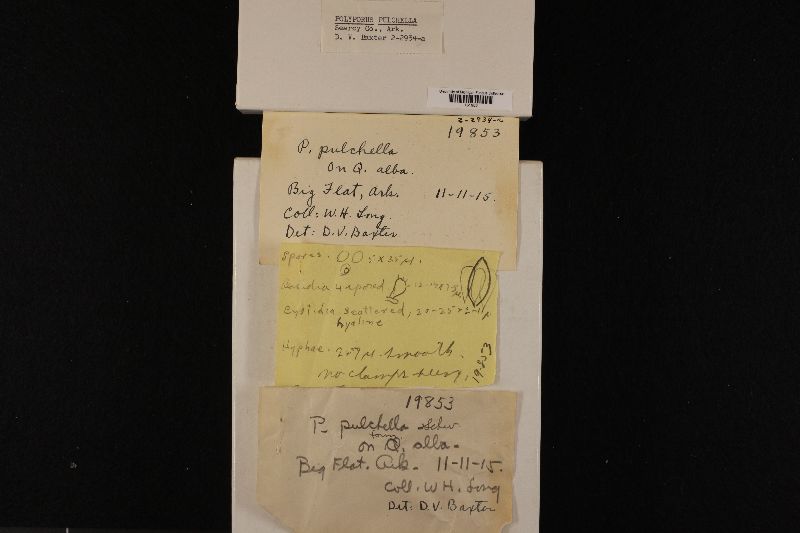 POLYPORUS PULCHELLA
Searcy Co., Ark.
D. V. Baxter 2-2934-a
2-2934-a
19853
P. pulchella
On Q. alba.
Big Flat, Ark. 11-11-15.
Coll: W.H. Long.
Det: D.V. Baxter
Spores.
Basidia 4 spored
Cystidia scattered,
hyaline
Hyphae. smooth.
no clamps seen,
19853
19853
P. pulchella Schw
on Q. alba.
Big Flat. Ark. 11-11-15.
Coll. W H. Long
Det: D.V. Baxter